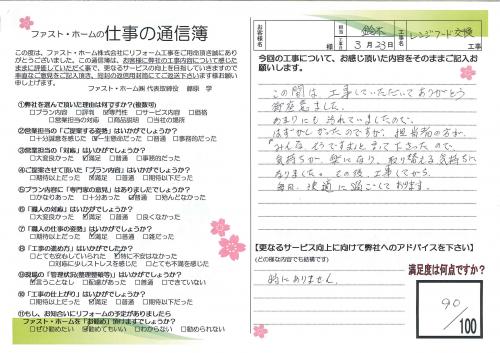 ファスト・ホームの仕事の通信簿
この度は、ファスト・ホーム株式会社にリフォーム工事をご用命頂き誠にあり
がとうございました。この通信簿は、お客様に弊社の工事内容について感じた
ままに評価していただく事で、更なるサービスの向上を目指していきますので
率直なご意見をご記入頂き、同封の返信用封筒にてご返送下さいます様お願い
申し上げます。
ファスト・ホーム㈱ 代表取締役 藤原 学
①弊社を選んで頂いた理由は何ですか?(複数可)
□プラン内容 □評判 ☑専門性 □サービス内容 □価格
□営業担当の対応 □商品説明 □当社の提案内容
②営業担当の「ご提案する姿勢」はいかがでしょうか?
□十分誠意を感じた □一生懸命だった □普通 □事務的だった
③営業担当の「対応」はいかがでしょうか?
□大変良かった ☑満足 □普通 □事務的だった
④ご提案させて頂いた「プラン内容」はいかがでしょうか?
□期待以上だった ☑満足 □普通 □期待以下だった
⑤プラン内容に「専門家の意見」はありましたでしょうか?
□かなりあった □十分あった ☑感じた □他社と変わらない
⑥「職人の対応」はいかがでしょうか?
□大変良かった ☑満足 □普通 □良くなかった
⑦「職人の仕事の姿勢」はいかがでしょうか?
□期待以上だった ☑満足 □普通 □雑だった
⑧「工事の進め方」はいかがでしたか?
□とても安心していられた ☑特に不安はなかった
□対応に少しストレスを感じた □とても不満を感じた
⑨現場の「管理状況(整理整頓等)」はいかがでしょうか?
☑言うことなし □配慮があった □普通 □できていない
⑩「工事の仕上がり」はいかがでしょうか?
□期待以上 ☑満足 □普通 □期待以下
⑪もし、お知合いにリフォームの予定がありましたら
ファスト・ホームを「お勧め」頂けますでしょうか?
□ぜひ勧めたい ☑勧めてもいい □わからない □勧められない
お客様名 様 担当 鈴木 工事日 3月23日 工事名 レンジフード交換 工事
今回の工事について、お感じ頂いた内容をそのままご記入お
願いします。
この間は 工事していただいてありがとう
御座居ました。
あまりにも汚れていましたので、
はずかしかったのですが、担当者の方が、
"みんな そうですよ"と言って下さったので、
気持ちが 楽になり、取り替える気持ちに
なりました。その後、工事してから、
毎日、快適に過ごしております。
【更なるサービス向上に向けて弊社へのアドバイスを下さい】
(どの様な内容でも結構です)
特にありません。
満足度は何点ですか?
90
/100